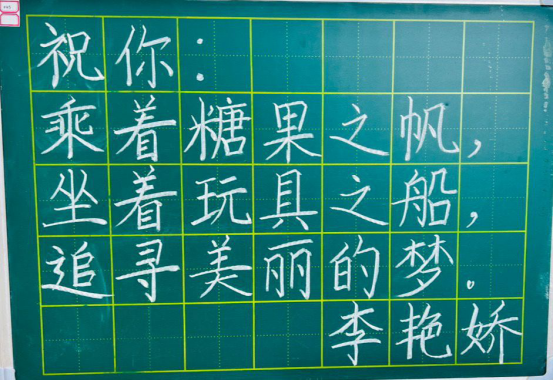 祝你：
乘着糖果之帆，
坐着玩具之船，
追寻美丽的梦。
李艳娇